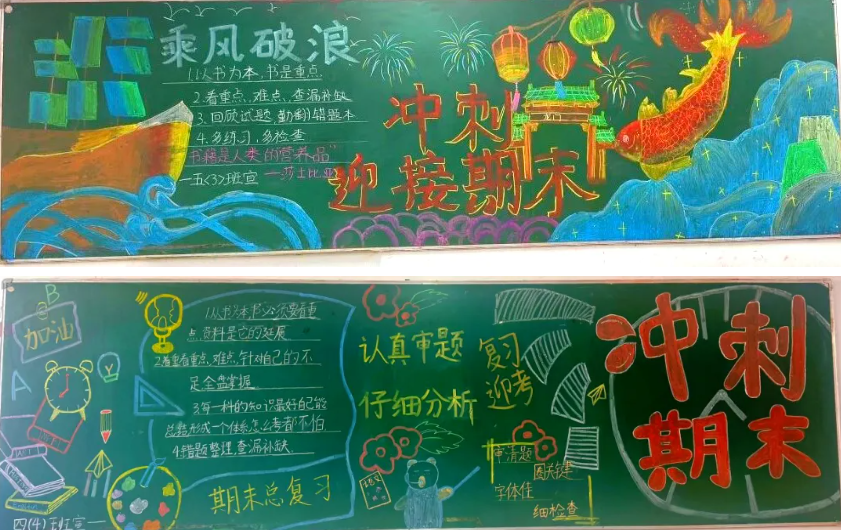 乘风破浪
1.以书为本,书是重点
2.看重点、难点、查漏补缺
3.回顾试题 勤翻错题本
4.多练习,多检查
书籍是人类的营养品"
一五<3>班宣 一莎士比亚
冲刺
迎接期末
B
加油
A
四(4)班宣一
1.以书为本书必须要看重
点,资料是它的延展
2.看重看重点,难点,针对自己的不
足全盘掌握
3.每一科的知识最好自己能
总整形成一个体系,怎么考都不怕
4.错题整理,查漏补缺
期末总复习
认真审题
仔细分析
复习
迎考
审清题
圈关键
字体佳
细检查
冲刺
期末